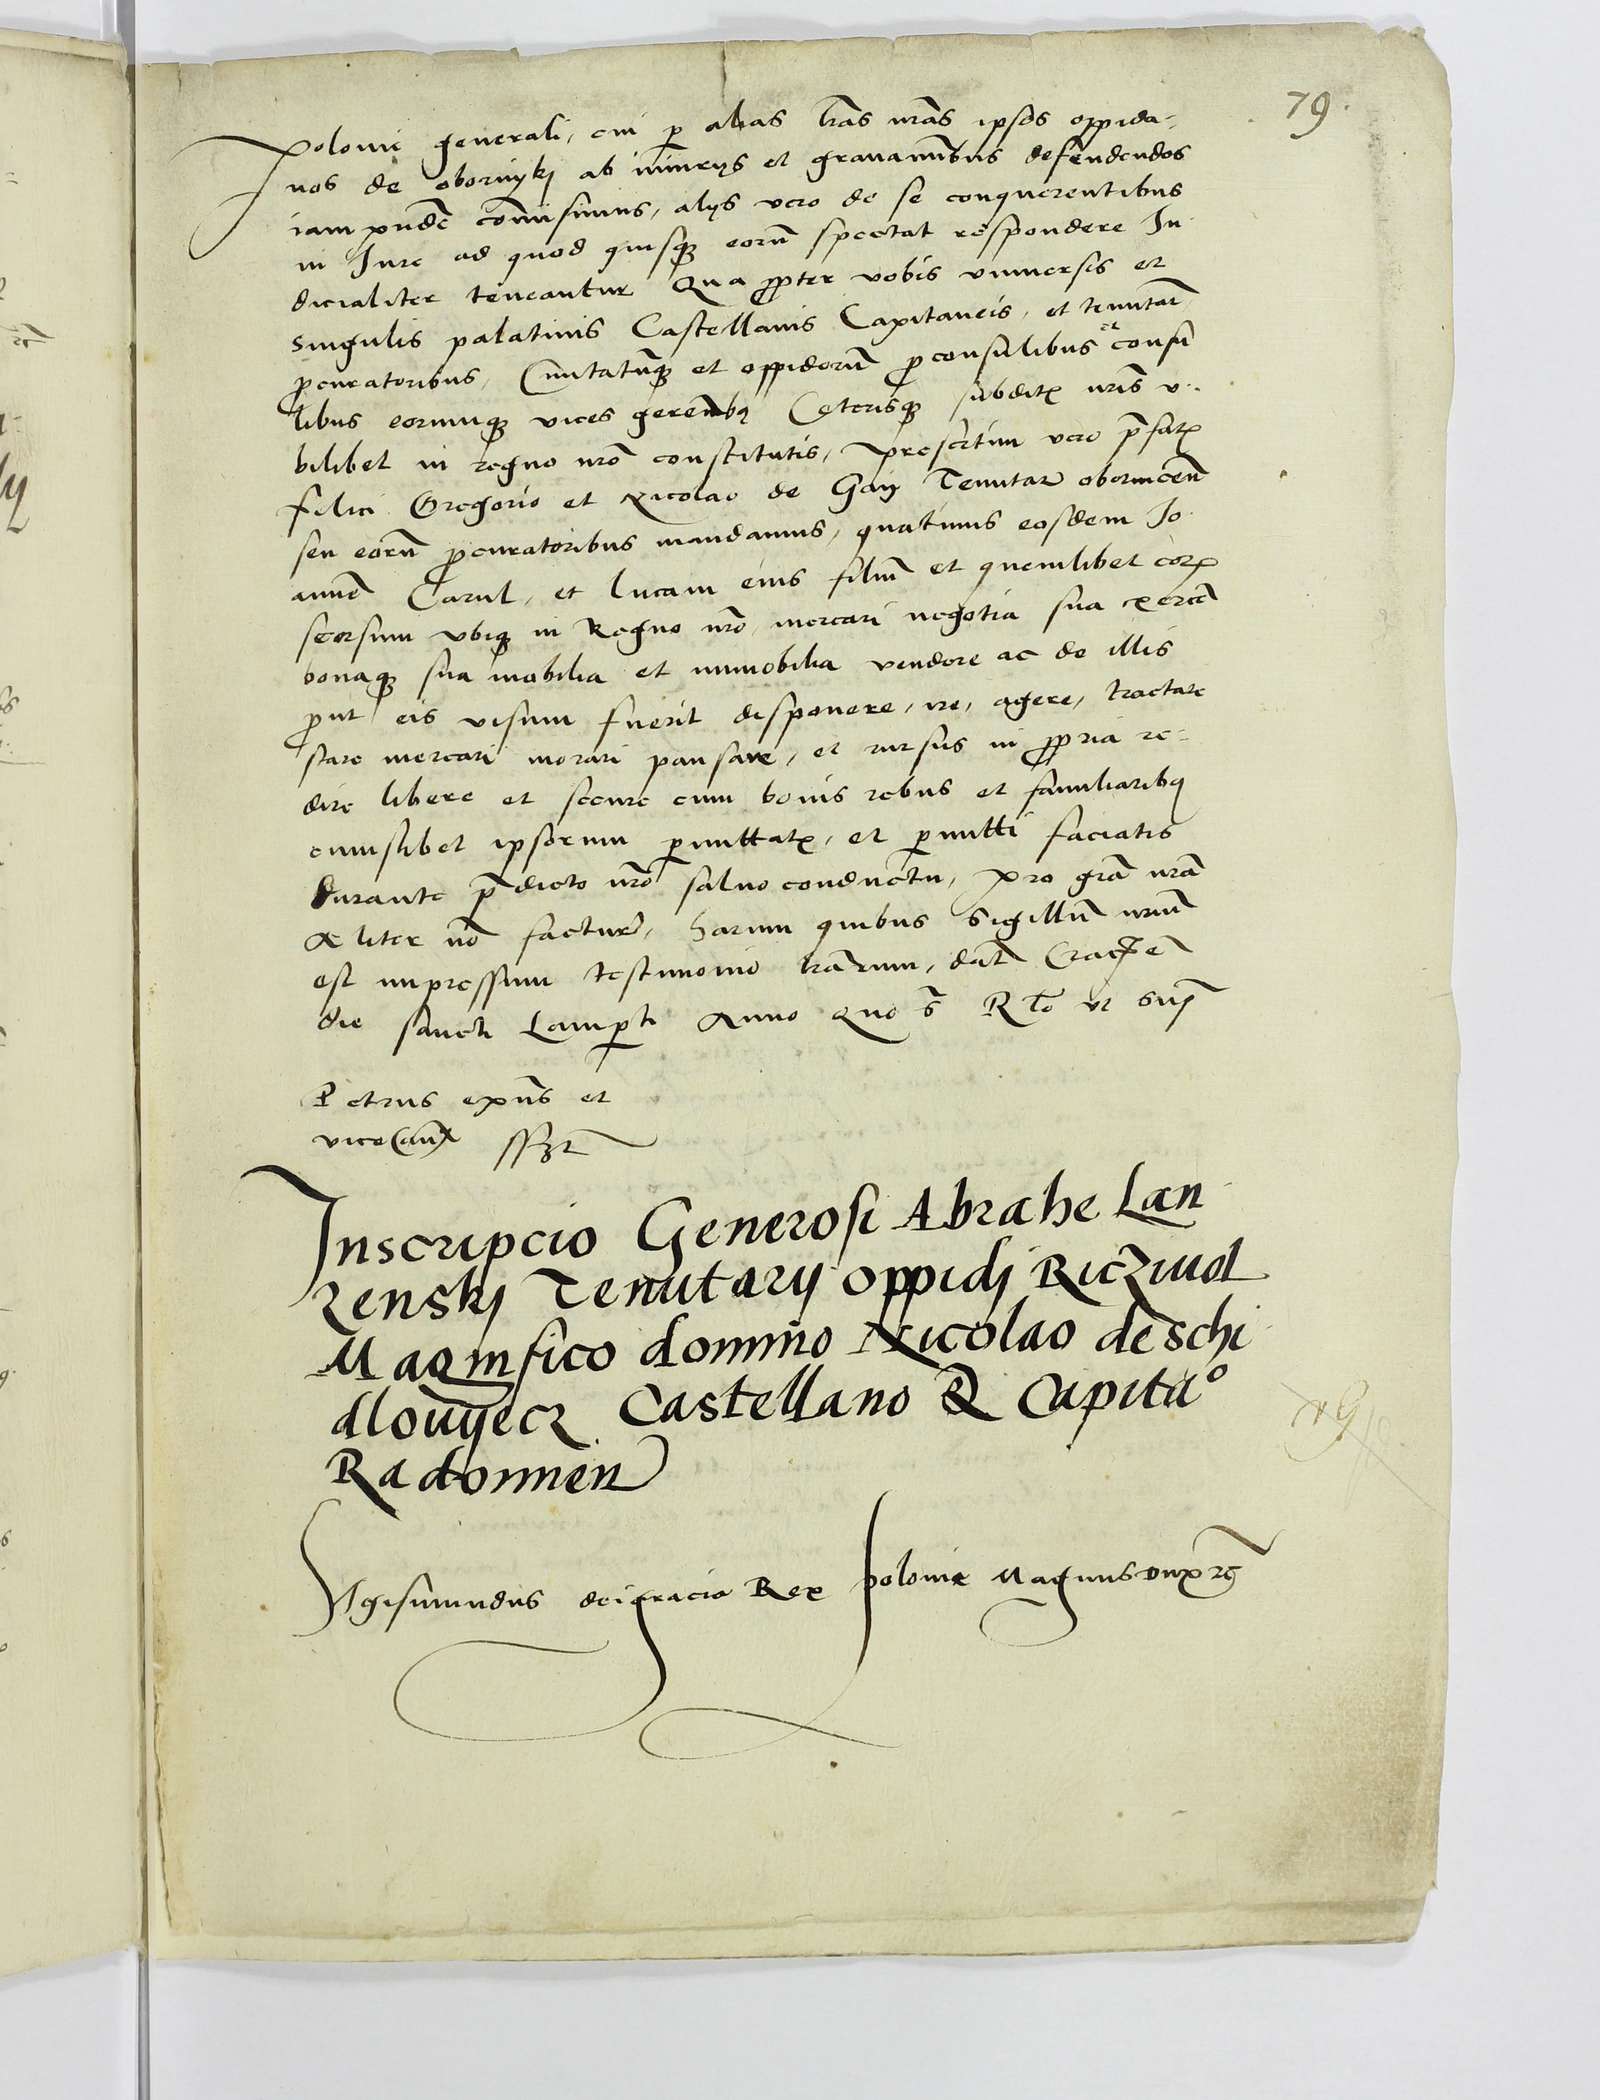 79.
Polonie generali, cui p alias lras nras ipsos oppida-
nos de obornyky ab iniurijs et grauaminibus defendendos
iam pridē comisimus, alijs vero de se conquerentibus
in Jure ad quod quisq eorū spectat respondere Ju
dicialiter teneantur Qua propter vobis vniuersis et
singulis palatinis Castellanis Capitaneis, et tenutar
procuratoribus, Ciuitatūq et oppidorū proconsulibus et consu
libus eorumq vices gerentibq Ceterisq subditis nris v
bilibet in regno nro constitutis, presertim vero prefatis
felici Gregorio et Nicolao de Gay Tenutar obornicen
seu eorū procuratoribus mandamus, quatinus eosdem Jo
annē Carul, et lucam eius filiū et quemlibet eorum
seorsum vbiq in Regno nro mercari negotia sua exercē
bonaq sua mobilia et immobilia vendere ac de illis
prout eis visum fuerit disponere, ire, agere, tractare
stare mercari morari pausare, et rursus in propria re-
dire libere et secure cum bonis rebus et familiaribq
cuiuslibet ipsorum permittatis, et permitti faciatis
durante predicto nro saluo conductu, pro gra nra
Aliter nō factur, harum quibus Sigillū nrum
est impressum testimonio lrarum, dat Craco
die sancti Lamperti Anno quo s R to vt sup
Petrus epus et
viceCan sszt
Inscripcio Generosi Abrahe Lan
zenskj Tenutarij oppidj Riczivol
Magnifico domino Nicolao de schi
dlovyecz Castellano & Capita°
Radomien
Sigismundus dei gracia Rex Polonie Magnus dux rc